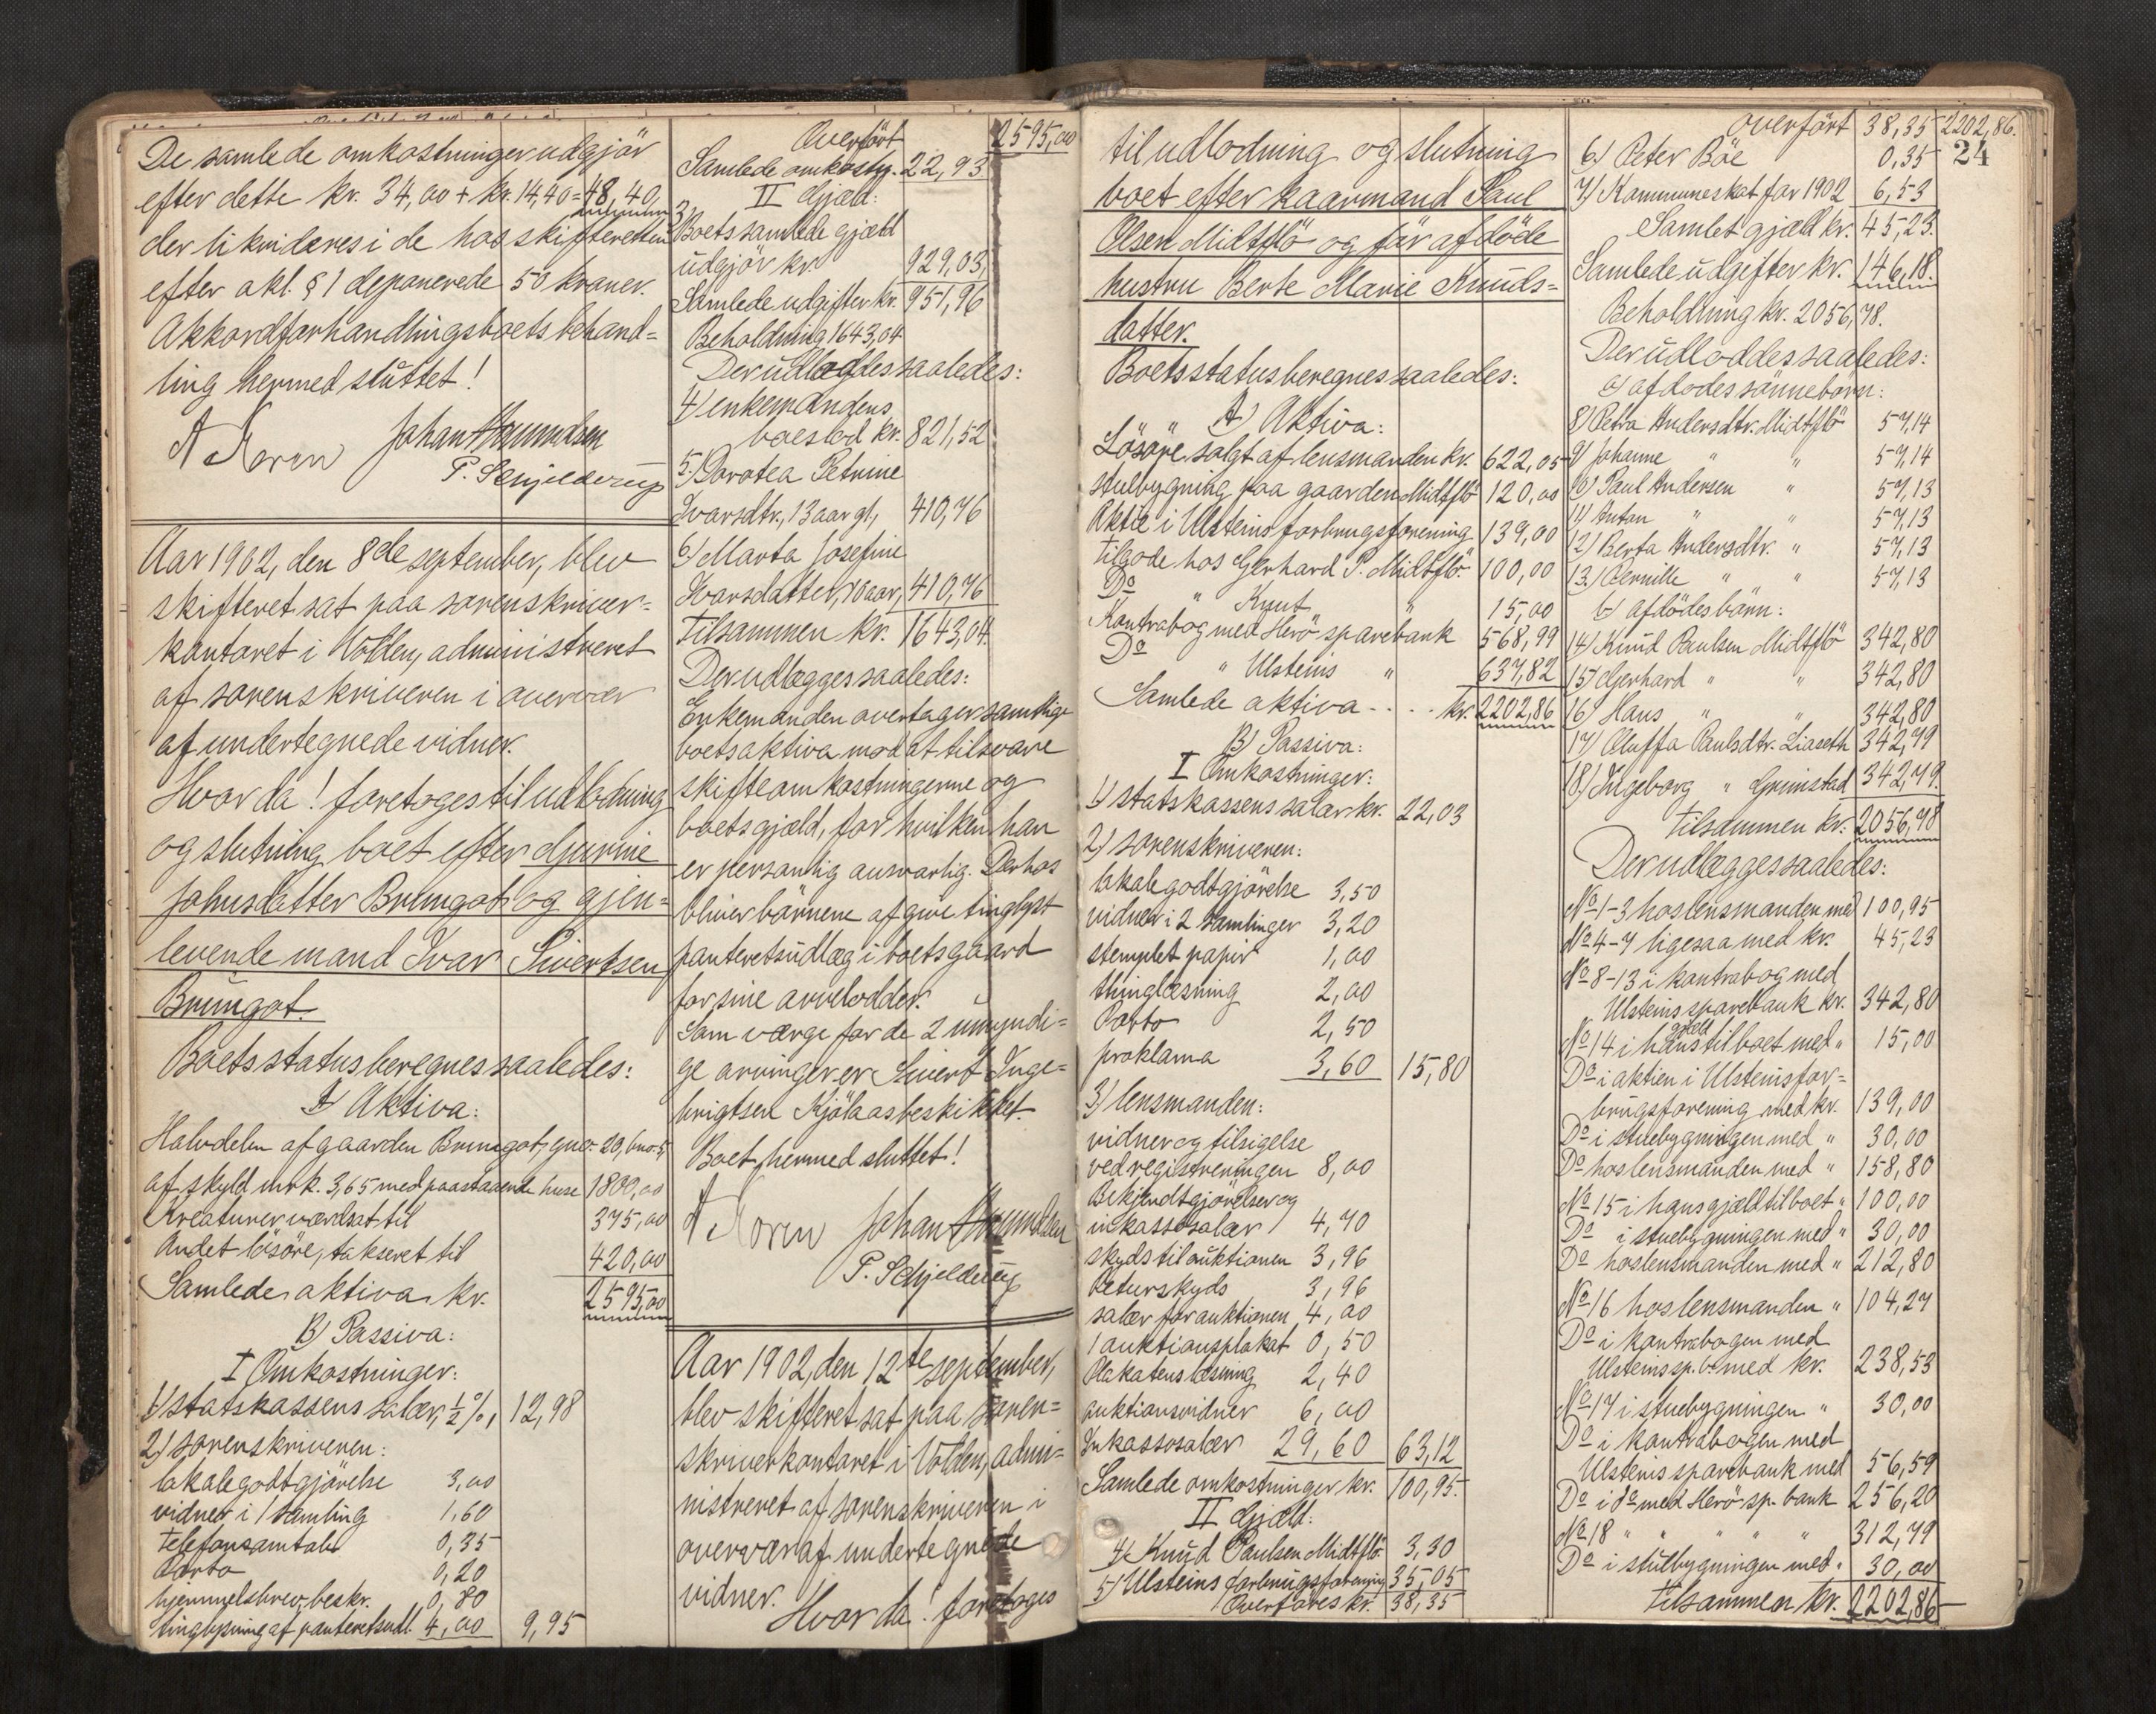 De samlede omkostninger udgjør
efter dette kr. 34,00 + kr. 14,40 = 48,40,
der likvideres i de hos skifteretten
efter akl. § 1 deponerede 50 kroner.
Akkordforhandlingsboets behand=
ling hermed sluttet!
Johan Aamundsen
P. Schjelderup
Aar 1902, den 8de september, blev
skifteret sat paa sorenskriver=
kontoret i Volden, administreret
af sorenskriveren i overvær
af undertegnede vidner.
Hvor da! foretoges til udlodning
og slutning boet efter Gjurine
Johnsdatter Brungot og gjen=
levende mand Ivar Sivertsen
Brungot.
Boets status beregnes saaledes:
A) Aktiva:
Halvdelen af gaarden Brungot, gno. 20, bno. 5,
af skyld mrk. 3,65 med paastaaende huse 1800,00
Kreaturer værdsat til 375,00
Andet løsøre, takseret til 420,00
Samlede aktiva kr. 2595,00
B) Passiva:
I Omkostninger:
1) statskassens salær, ½ %, 12,98
2) sorenskriveren:
lokalegodtgjørelse 3,00
vidner i 1 samling 1,60
telefonsamtale 0,35
Porto 0,20
hjemmelsbrev, beskr. 0,80
tinglysning af panteretsudl. 4,00 9,95
Overført 2595,00
Samlede omkostn. 22,93
II Gjæld:
3) Boets samlede gjæld
udgjør kr. 929,03,
Samlede udgifter kr. 951,96
Beholdning 1643,04
Der udlægges saaledes:
4) enkemandens
boeslod kr. 821,52
5.) Dorotea Petrine
Ivarsdtr., 13 aar gl., 410,76
6) Marta Josefine
Ivarsdatter, 10 aar, 410,76
Tilsammen kr. 1643,04.
Der udlægges saaledes:
Enkemanden overtager samtlige
boets aktiva mod at tilsvare
skifteomkostningerne og
boets gjæld, for hvilken han
er personlig ansvarlig. Derhos
bliver børnene at give tinglyst
panteretsudlæg i boets gaard
for sine arvelodder.
Som værge for de 2 umyndi=
ge arvinger er Sivert Inge=
brigtsen Kjølaas beskikket.
Boet hermed sluttet!
Johan Aamundsen
P. Schjelderup
Aar 1902, den 12te september,
blev skifteret sat paa soren=
skriverkontoret i Volden, admi=
nistreret af sorenskriveren i
overvær af undertegnede
vidner.
Hvor da! foretoges
til udlodning og slutning
boet efter kaarmand Paul
Olsen Midtflø og før afdøde
hustru Berte Marie Knuds=
datter.
Boets status beregnes saaledes:
A) Aktiva:
Løsøre solgt af lensmanden kr. 622,05
Stuebygning paa gaarden Midtflø 120,00
Aktie i Ulsteins forbrugsforening 139,00
Tilgode hos Gerhard P. Midtflø 100,00
Do " Knut " 15,00
Kontrabog med Herø sparebank 568,99
Do " Ulsteins " 637,82
Samlede aktiva - . . . kr. 2202,86
B) Passiva:
I Omkostninger:
1) statskassens salær kr. 22,03
2) sorenskriveren:
lokalegodtgjørelse 3,50
vidner i 2 samlinger 3,20
stemplet papir 1,00
thinglæsning 2,00
Porto 2,50
proklama 3,60 15,80
3) lensmanden:
vidner og tilsigelse
ved registreringen 8,00
Bekjendtgjørelser og
inkassosalær 4,70
skyds til auktionen 3,96
Returskyds 3,96
salær for auktionen 4,00
1 auktionsplakat 0,50
Plakatens læsning 2,40
auktionsvidner 6,00
Inkassosalær 29,60 63,12
Samlede omkostninger kr. 100,95.
II Gjæld:
4) Knud Paulsen Midtflø 3,30
5) Ulsteins forbrugsforening 35,05
Overføres kr. 38,35
overført 38,35 2202,86.
24
6) Peter Bøe 0,35
7) Kommuneskat for 1902 6,53
Samlet gjæld kr. 45,23.
Samlede udgifter kr. 146,18.
Beholdning kr. 2056,78.
Der udloddes saaledes:
a) afdødes sønnebørn:
8) Petra Andersdtr. Midtflø 57,14
9) Johanne " " 57,14
10) Paul Andersen " 57,13
11) Anton " " 57,13
12) Berta Andersdtr. " 57,13
13.) Pernille " " 57,13
b) afdødes børn:
14) Knud Paulsen Midtflø 342,80
15) Gerhard " " 342,80
16) Hans " " 342,80
17) Oluffa Paulsdtr. Liaseth 342,79
18) Ingeborg " Grimstad 342,79.
Tilsammen kr. 2056,78
Der udlægges saaledes:
No 1-3 hos lensmanden med 100,95
No 4-7 ligesaa med kr. 45,23
No 8-13 i kontrabog med
Ulsteins sparebank kr. 342,80
No 14 i hans gjæld til boet med " 15,00
Do i aktien i Ulsteins for=
brugsforening med kr. 139,00
Do i stuebygningen med " 30,00
Do hos lensmanden med " 158,80
No 15 i hans gjæld til boet " 100,00
Do i stuebygningen med " 30,00
Do hos lensmanden med " 212,80
No 16 hos lensmanden " 104,27
Do i kontrabogen med
Ulsteins sp. b. med kr. 238,53
No 17 i stuebygningen " 30,00
Do i kontrabogen med
Ulsteins sparebank med 56,59
Do i do med Herø sp. bank 256,20
No 18 " " " " " 312,79
Do i stuebygningen med " 30,00
Tilsammen kr. 2202,86